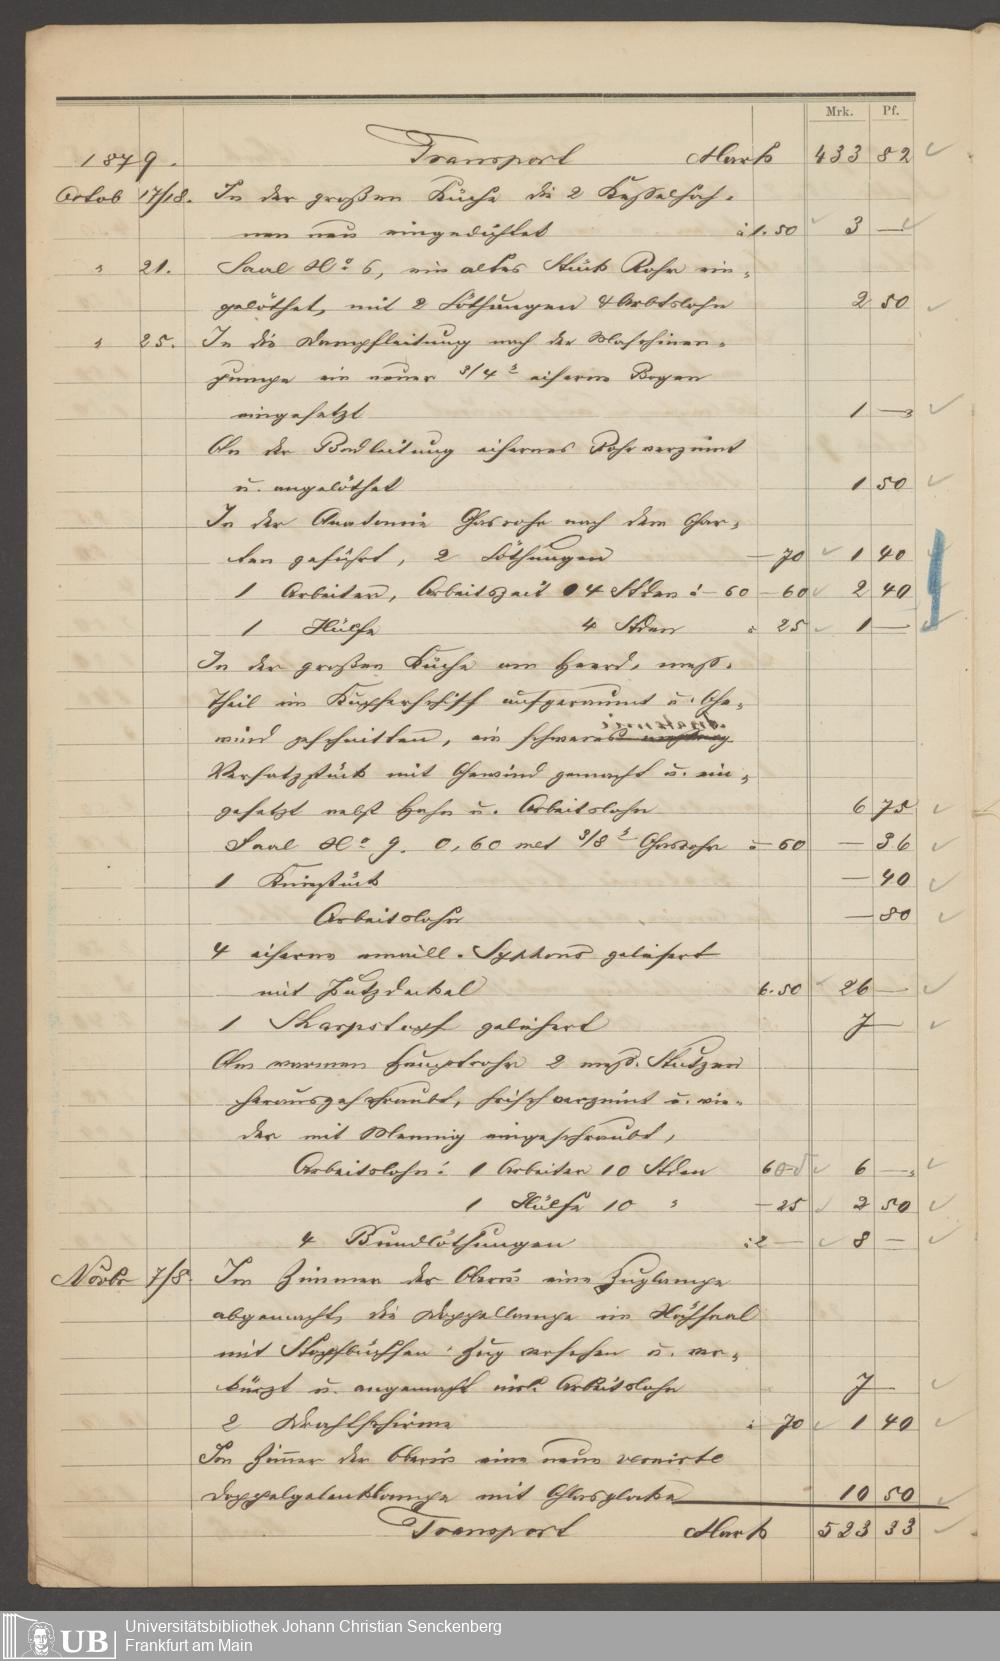 Mrk. Pf.
1879. Transport Mark 433 82
Octob 17/18. In der großen Küche die 2 Kesselhäh-
nen neu eingedichtet à 1.50 3 —
" 21. Saal No 6, ein altes Stück Rohr ein-
gelöthet, mit 2 Löthungen & Arbtslohn 2 50
" 25. In die Dampfleitung nach der Maschinen-
pumpe ein neuer 3/4" eiserne Bogen
eingesetzt 1 —
An der Badleitung eisernes Rohr verzinnt
u. angelöthet 1 50
In der Anatomie Gasrohr nach dem Gar-
ten geführt, 2 Löthungen — 70 1 40
1 Arbeiter, Arbeitszeit 4 Stden à — 60 — 60 2 40
1 Hülfe 4 Stden " 25 1 —
In der großen Küche am Heerd, mess.
Theil im Kupferschiff aufgeräumt u. Ge-
wind geschnitten, ein schweres
Versatzstück mit Gewind gemacht u. ein-
gesetzt nebst Hahn u. Arbeitslohn 6 75
Saal No 9. 0,60 met 3/8" Gasrohr à — 60 — 36
1 Kniestück — 40
Arbeitslohn — 80
4 eiserne emaill. Syphons geliefert
mit Putzdeckel 6.50 26 —
1 geliefert 7 —
Am warmen Hauptrohr 2 mess. Stutzen
herausgeschraubt, frisch verzinnt u. wie-
der mit Mennig eingeschraubt,
Arbeitslohn: 1 Arbeiter 10 Stden 60 6 —
1 Hülfe 10 " — 25 2 50
4 Bundlöthungen à 2 — 8 —
Novbr 7/8. Im Zimmer der Oberin eine Zuglampe
abgemacht, die Doppellampe im Hörsaal
mit Stopfbüchsen Zug versehen u. ver-
kürzt u. angemacht incl. Arbeitslohn 7 —
2 Drahtschirme à — 70 1 40
Im Zimmer der Oberin eine neue vernirte
Doppelgelenklampe mit Glasglocke 10 50
Transport Mark 523 33
UB
Universitätsbibliothek Johann Christian Senckenberg
Frankfurt am Main